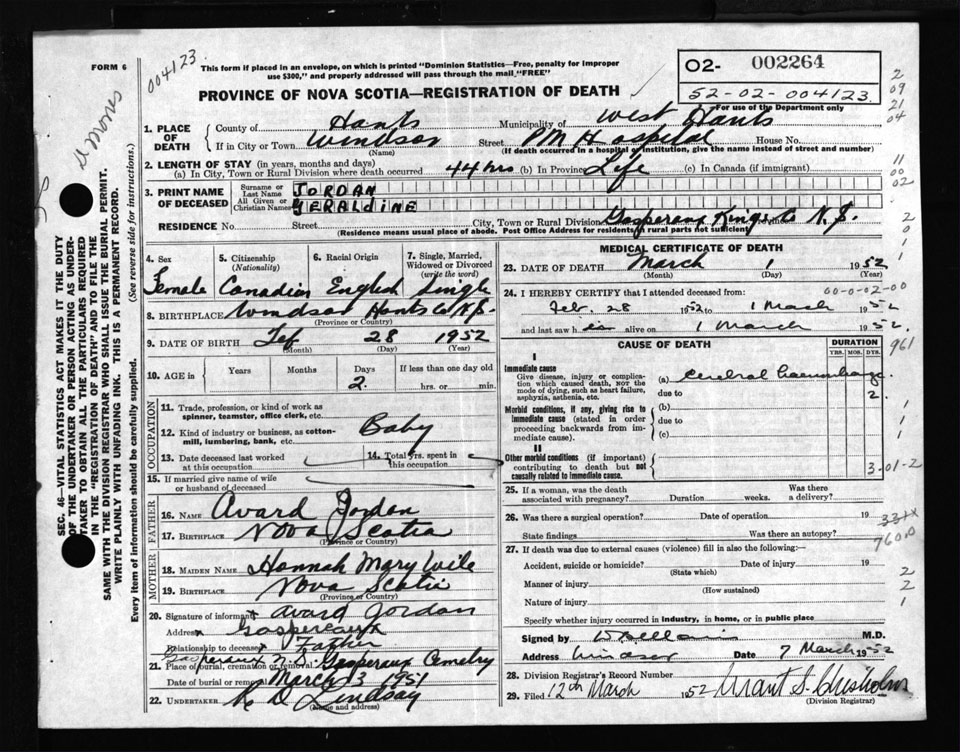 FORM 6
004123
This form if placed in an envelope, on which is printed "Dominion Statistics—Free, penalty for improper
use $300," and properly addressed will pass through the mail "FREE"
PROVINCE OF NOVA SCOTIA—REGISTRATION OF DEATH
02- 002264
52-02-004123
For use of the Department only
2
09
21
04
11
00
02
2
0
1
1
SEC. 46—VITAL STATISTICS ACT MAKES IT THE DUTY
OF THE UNDERTAKER OR PERSON ACTING AS UNDER-
TAKER TO OBTAIN ALL THE PARTICULARS REQUIRED
IN THE "REGISTRATION OF DEATH" AND TO FILE THE
SAME WITH THE DIVISION REGISTRAR WHO SHALL ISSUE THE BURIAL PERMIT.
WRITE PLAINLY WITH UNFADING INK. THIS IS A PERMANENT RECORD.
Every item of information should be carefully supplied. (See reverse side for instructions.)
1. PLACE OF DEATH
County of Hants Municipality of West Hants
If in City or Town Windsor Street PM Hospital House No.
(Name) (If death occurred in a hospital or institution, give the name instead of street and number)
2. LENGTH OF STAY (in years, months and days)
(a) In City, Town or Rural Division where death occurred 44 hrs (b) In Province Life (c) In Canada (if immigrant)
3. PRINT NAME OF DECEASED
Surname or Last Name JORDAN
All Given or Christian Names GERALDINE
RESIDENCE No. Street City, Town or Rural Division Gasperaux Kings Co N.S.
(Residence means usual place of abode. Post Office Address for residents in rural parts not sufficient)
4. Sex
Female
5. Citizenship (Nationality)
Canadian
6. Racial Origin
English
7. Single, Married, Widowed or Divorced (write the word)
Single
8. BIRTHPLACE Windsor Hants Co N.S.
(Province or Country)
9. DATE OF BIRTH Feb 28 1952
(Month) (Day) (Year)
10. AGE in Years Months Days If less than one day old
2. hrs. or min.
OCCUPATION
11. Trade, profession, or kind of work as
spinner, teamster, office clerk, etc.
12. Kind of industry or business, as cotton-
mill, lumbering, bank, etc. Baby
13. Date deceased last worked at this occupation
14. Total yrs. spent in this occupation
15. If married give name of wife or husband of deceased
FATHER
16. NAME Avard Jordan
17. BIRTHPLACE Nova Scotia
(Province or Country)
MOTHER
18. MAIDEN NAME Hannah Mary Wile
19. BIRTHPLACE Nova Scotia
(Province or Country)
20. Signature of informant x Avard Jordan
Address x Gaspereaux
Relationship to deceased x Father
21. Place of burial, cremation or removal Gasperaux Cemetry
Date of burial or removal March 3 1951
22. UNDERTAKER Lindsay
(Name and address)
MEDICAL CERTIFICATE OF DEATH
23. DATE OF DEATH March 1 1952
(Month) (Day) (Year)
24. I HEREBY CERTIFY that I attended deceased from: 00-0-02-00
Feb. 28 1952 to 1 March 1952
and last saw h alive on 1 March 1952.
CAUSE OF DEATH
DURATION
YRS. MOS. DYS.
961
I
Immediate cause
Give disease, injury or complica-
tion which caused death, NOT the
mode of dying, such as heart failure,
asphyxia, asthenia, etc.
(a) Cerebral haemorrhage.
due to 2.
Morbid conditions, if any, giving rise to
immediate cause (stated in order
proceeding backwards from im-
mediate cause).
(b)
due to
(c)
1
1
1
II
Other morbid conditions (if important)
contributing to death but not
causally related to immediate cause.
3-01-2
25. If a woman, was the death associated with pregnancy? Duration weeks. Was there a delivery?
26. Was there a surgical operation? Date of operation 19
State findings Was there an autopsy?
7600
27. If death was due to external causes (violence) fill in also the following:—
Accident, suicide or homicide? Date of injury 19
(State which)
2
Manner of injury
2
(How sustained)
Nature of injury
1
Specify whether injury occurred in industry, in home, or in public place
Signed by M.D.
Address Windsor Date 7 March 1952
28. Division Registrar's Record Number
29. Filed 12th March 1952 Grant S. Chisholm
(Division Registrar)